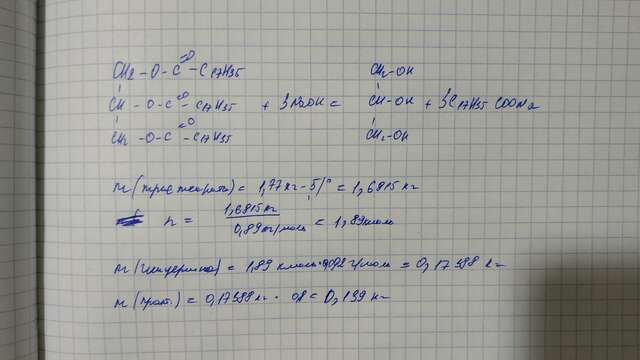 CH2 - O - C =O - C17H35     CH2 - OH
CH - O - C =O - C17H35 + 3NaOH = CH - OH + 3C17H35 COONa
CH2 - O - C =O - C17H35     CH2 - OH
m (тристеарата) = 1,77 кг - 5% = 1,6815 кг
n = 1,6815 кг / 0,89 кг/моль = 1,89 кмоль
m (глицерина) = 1,89 кмоль · 0,092 г/моль = 0,17388 кг
m (практ.) = 0,17388 кг · 0,8 = 0,139 кг